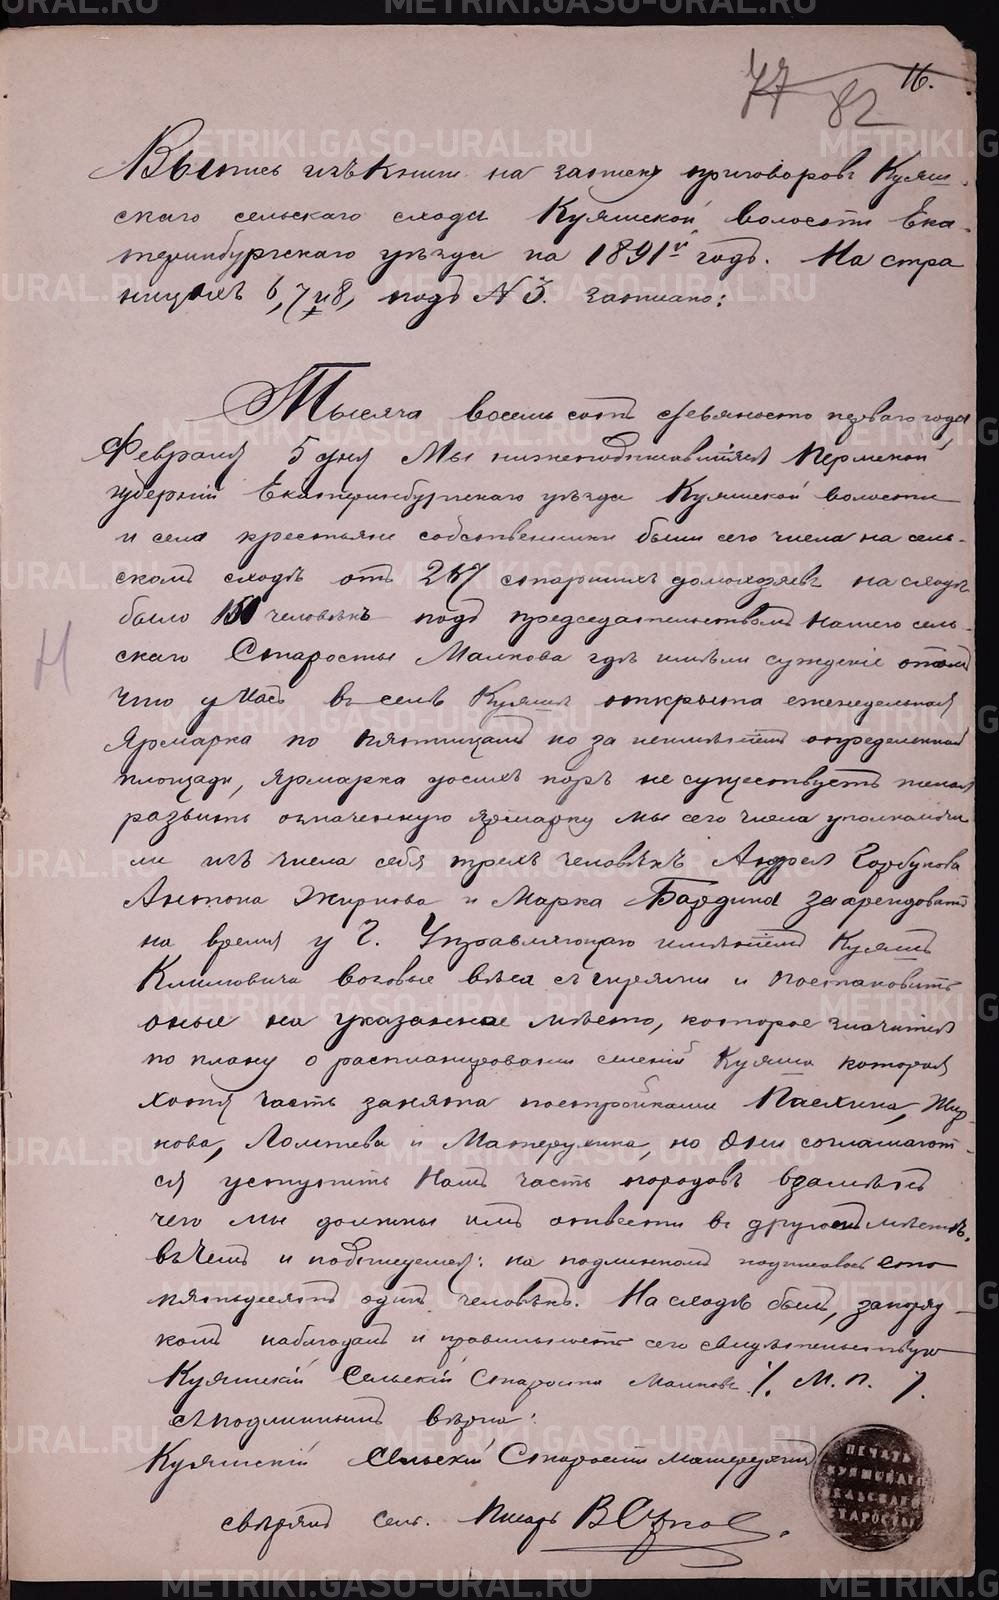 77 82 16.
Выпись изъ книги на записку приговоровъ Куяш-
скаго сельскаго схода Куяшской волости Ека-
теринбургскаго уѣзда на 1891й годъ. На стра
ницахъ 6, 7 и 8, подъ № 3. записано:
Тысяча восемьсотъ девяносто перваго года
Февраля 5 дня Мы нижеподписавшіяся Пермской
губерніи Екатеринбургскаго уѣзда Куяшской волости
и села крестьяне собственники были сего числа на сель-
скомъ сходѣ отъ 267 старшихъ домохозяевъ на сходѣ
было 151 человѣкъ подъ предсѣдательствомъ нашего сель-
скаго Старосты Малкова гдѣ имѣли сужденіе о томъ
что у насъ въ селѣ Куяшѣ открыта еженедельная
Ярмарка по пятницамъ но за неимѣніемъ определенной
площади, ярмарка до сихъ поръ не существуетъ желая
развить означенную ярмарку мы сего числа уполномочи
ли изъ числа себя трехъ человѣкъ Андрея Горбунова
Антона Жирнова и Марка Бардина заарендовать
на время у Г. Управляющаго имѣніемъ Куяшъ
Климовича возовые вѣса съ гирями и постановить
оные на указанное мѣсто, которое значится
по плану о распланировании селенія Куяша которая
хотя часть занята постройками Паслина, Жир-
нова, Ломтева и Матерухина, но Они соглашают-
ся уступить Намъ часть огородовъ взамѣнъ
чего мы должны имъ отвести въ другомъ мѣстѣ,
въ чемъ и подпишемся: на подлинномъ подписалось сто
пятьдесятъ одинъ человѣкъ. На сходѣ былъ, за поряд-
комъ наблюдалъ и правильность сего свидѣтельствую
Куяшскій Сельскій Староста Малковъ /. М. П. /.
Съ подлиннымъ вѣрно:
Куяшскій Сельскій Староста Матерухинъ
свѣрялъ Сел. Писарь
ПЕЧАТЬ
КУЯШСКАГО
СЕЛЬСКАГО
СТАРОСТЫ
Н
METRIKI.GASO-URAL.RU